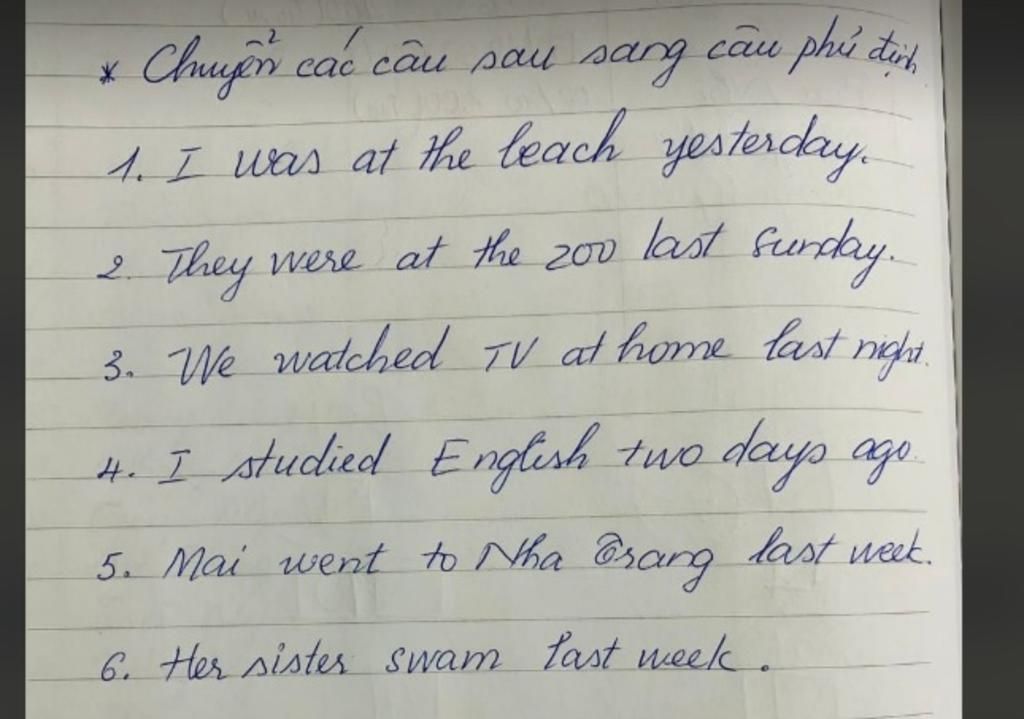 * Chuyển các câu sau sang câu phủ định
1. I was at the beach yesterday.
2. They were at the zoo last Sunday.
3. We watched TV at home last night.
4. I studied English two days ago.
5. Mai went to Nha Trang last week.
6. Her sister swam last week.